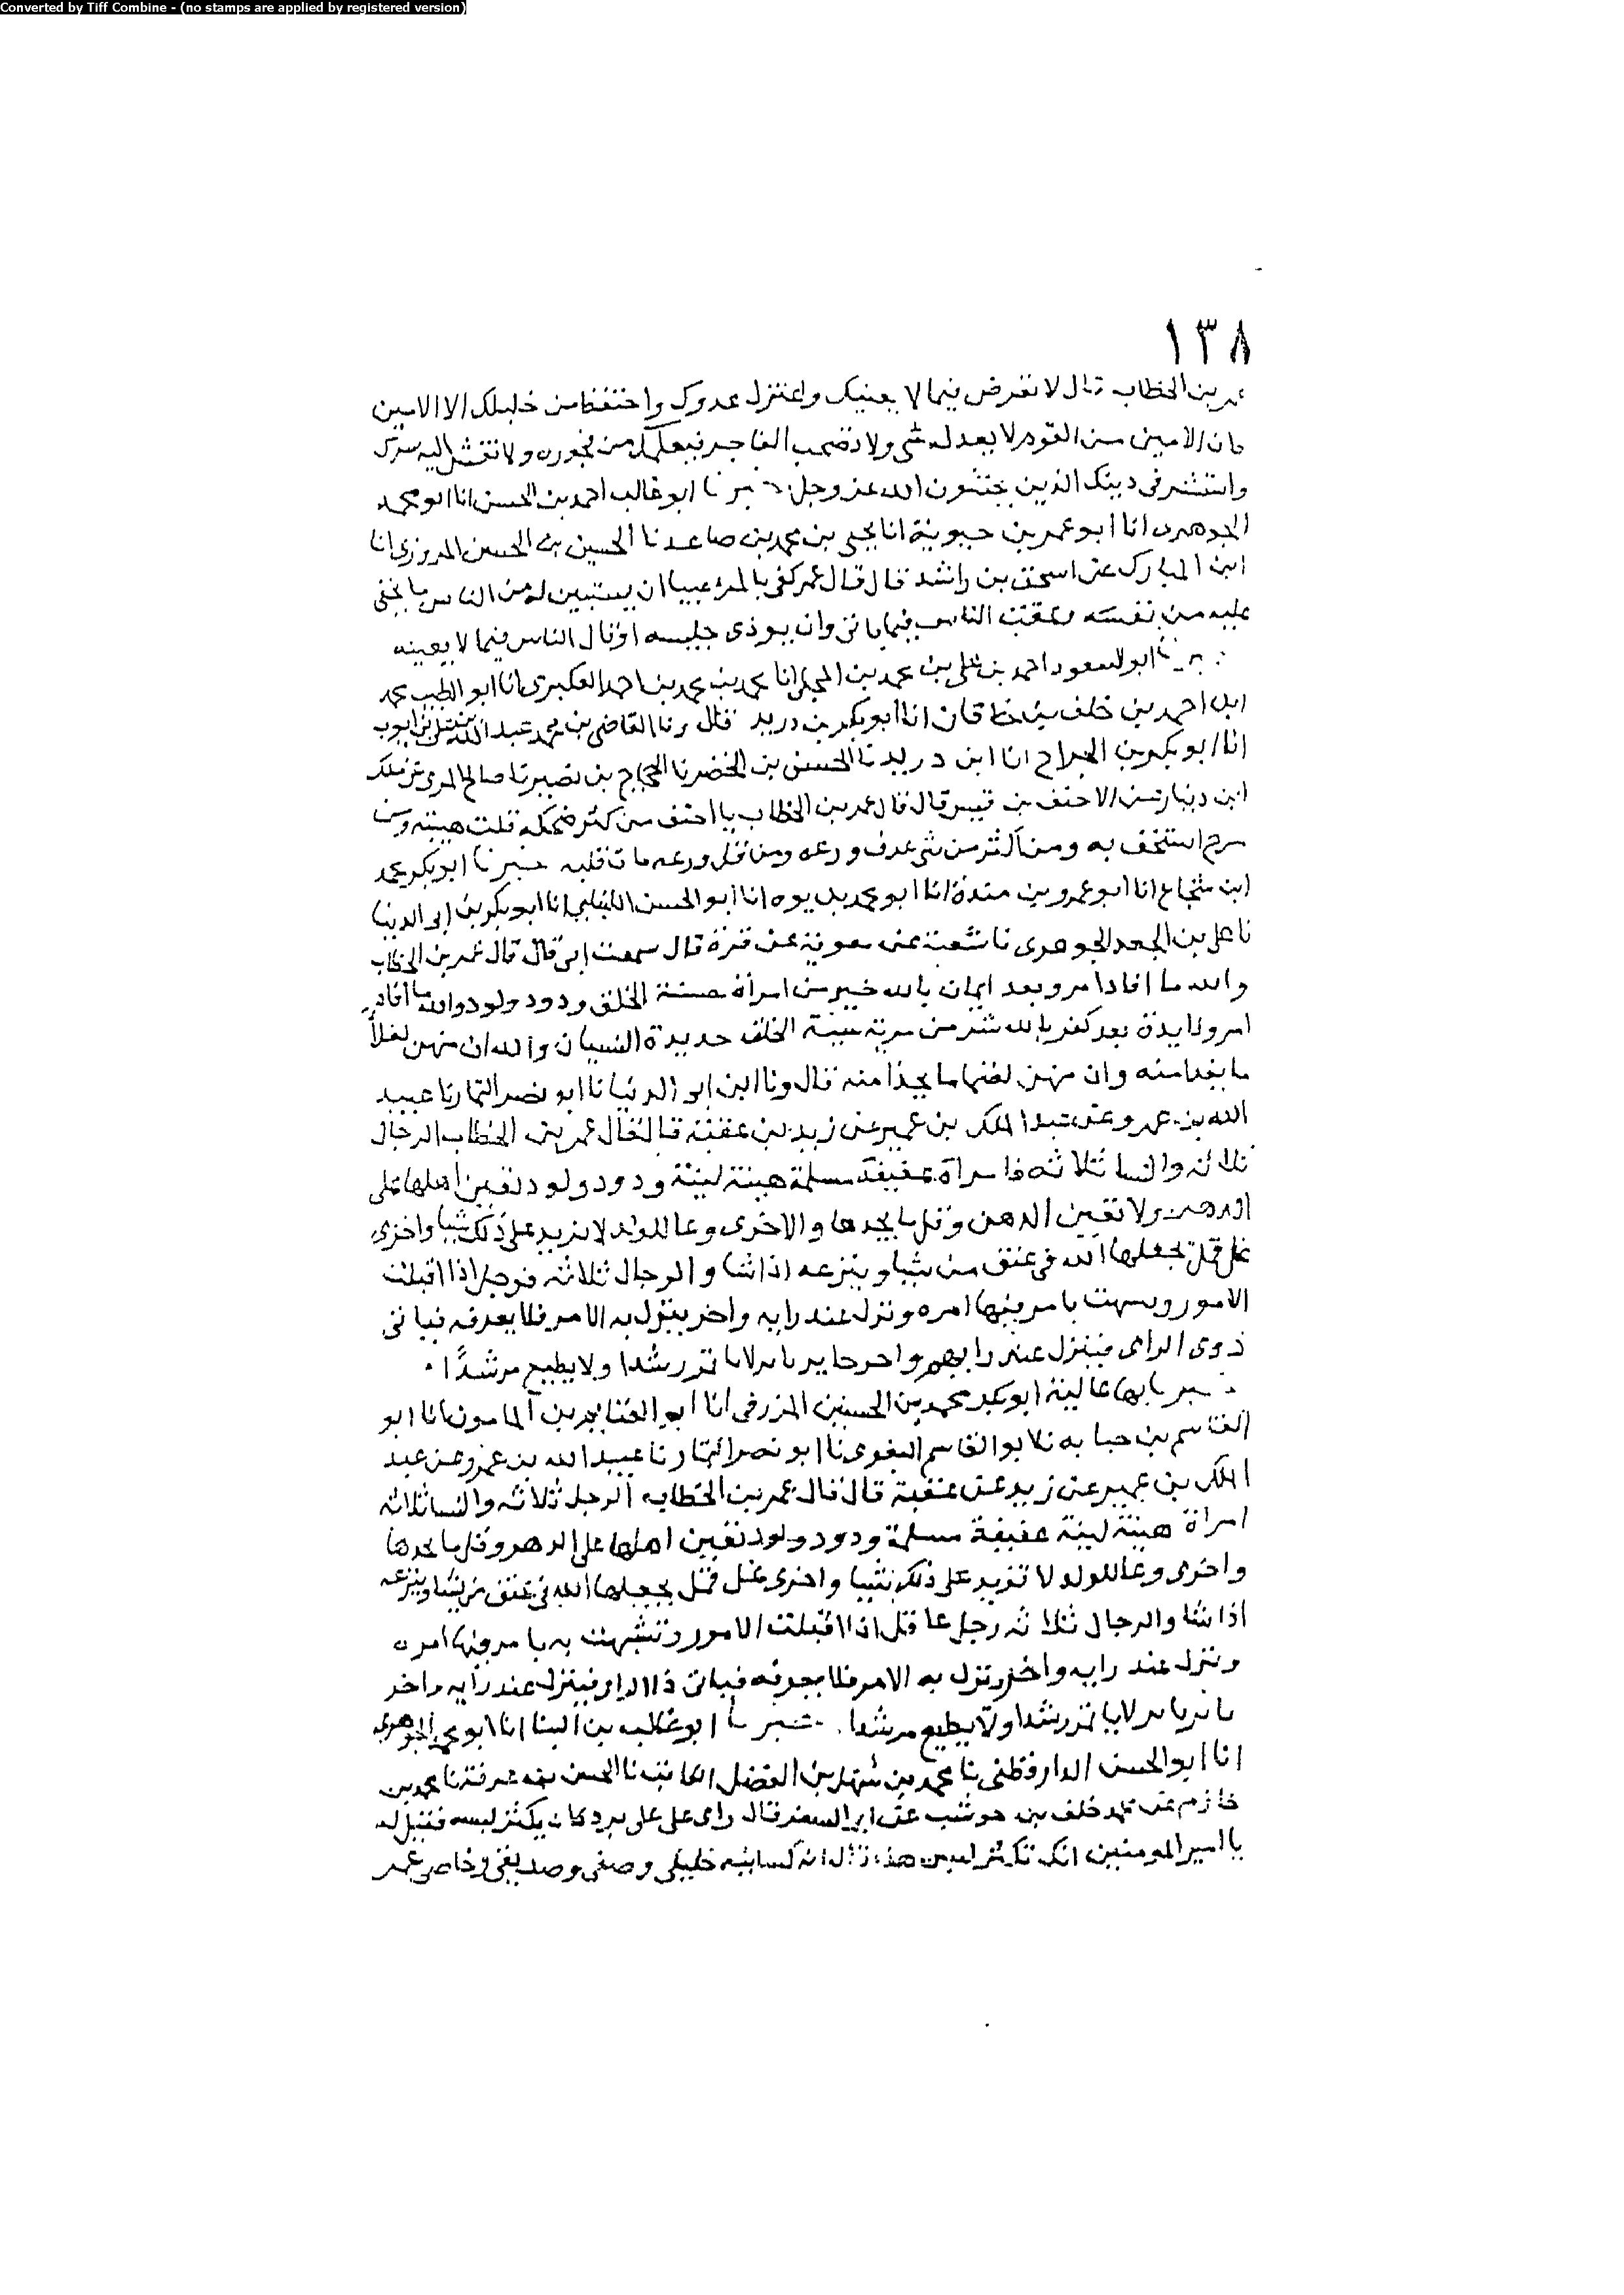 Converted by Tiff Combine - (no stamps are applied by registered version)
١٣٨
عمر بن الخطاب قال لا تعرض فيما لا يعنيك واعتزل عدوك واحتفظ من خليلك الا الامين
فان الامين من القوم لا يعدله شى ولا تصحب الفاجر فيعلمك من فجوره ولا تفش اليه سرك
واستشر فى دينك الذين يخشون الله عز وجل اخبرنا ابو غالب احمد بن الحسن انا ابو محمد
الجوهرى انا ابو عمر بن حيوية انا يحيى بن محمد بن صاعد نا الحسين بن الحسن المروزى انا
ابن المبارك عن اسحق بن راشد قال قال عمر كفى بالمرء عيبا ان يستبين له من الناس ما يخفى
عليه من نفسه ويمقت الناس فيما ياتى وان يوذى جليسه او قال الناس فيما لا يعينه
ابو السعود احمد بن على بن محمد بن المجلى انا محمد بن محمد بن احمد العكبرى انا ابو الطيب محمد
ابن احمد بن خلف بن خاقان انا ابو بكر بن دريد قال ونا القاضى بن محمد عبد الله بن على بن ايوب
انا ابو بكر بن الجراح انا ابن دريد نا الحسن بن الخضر نا الحجاج بن نصير نا صالح المرى عن ملك
ابن دينار عن الاحنف بن قيس قال قال عمر بن الخطاب يا احنف من كثر ضحكه قلت هيبته ومن
مزح استخف به ومن اكثر من شى عرف ورعه ومن قل ورعه مات قلبه خبرنا ابو بكر محمد
ابن شجاع انا ابو عمرو بن مندة انا ابو محمد بن يوه انا ابو الحسن اللنبانى انا ابو بكر بن ابى الدنيا
نا على بن الجعد الجوهرى نا شعبة عن معوية عن قرة قال سمعت ابى قال قال عمر بن الخطاب
والله ما افاد امرو بعد ايمان بالله خير من امراة حسنة الخلق ودود ولود والله ما افاد
امرو فايدة بعد كفر بالله شر من مرية سيئة الخلق حديدة اللسان والله ان منهن لغلا
ما يفدا منه وان منهن لغنما ما يحذا منه قال ونا ابن ابى الدنيا نا ابو نصر التمار نا عبيد
الله بن عمرو عن عبد الملك بن عمير عن زيد بن عقبة قال قال عمر بن الخطاب الرجال
ثلاثه والنسا ثلاثه فامراة عفيفة مسلمة هينة لينة ودود ولود تعين اهلها على
الدهر ولا تعين الدهر وقل ما يجدها والاخرى وعا للولد لا يزيد على ذلك شيا واخرى
غل قمل يجعلها الله فى عنق من شيا وينزعه اذا شا والرجال ثلاثه فرجل اذا اقبلت
الامور وبهت يامر فيها امره ونزل عند رايه واخر ينزل به الامر فلا يعرفه فياتى
ذوى الراى فينزل عند رايهم واخر حاير باير لا ياتمر رشدا ولا يطيع مرشدا
بها عالية ابو بكر محمد بن الحسين المزرفى انا ابو الغنايم بن المامون انا ابو
القاسم بن حبابه نا ابو القاسم البغوى نا ابو نصر التمار نا عبيد الله بن عمرو عن عبد
الملك بن عمير عن زيد عن عقبة قال قال عمر بن الخطاب الرجل ثلاثه والنسا ثلاثه
امراة هينة لينة عفيفة مسلمة ودود ولود تعين اهلها على الدهر وقل ما يجدها
واخرى وعا للولد لا تزيد على ذلك شيا واخرى غل قمل يجعلها الله فى عنق من يشا وينزعه
اذا شا والرجال ثلاثه رجل عاقل اذا اقبلت الامور وتشبهت به يامر فيها امره
ونزل عند رايه واخر نزل به الامر فلا يعرفه فياتى ذا الراى فينزل عند رايه واخر
حاير باير لا ياتمر رشدا ولا يطيع مرشدا. خبرنا ابو غالب بن البنا انا ابو محمد الجوهرى
انا ابو الحسن الدارقطنى نا محمد بن سهل بن الفضل الكاتب نا الحسن بن عرفة نا محمد بن
خازم عن خلف بن حوشب عن ابى السفر قال راى على على برد كان يكثر لبسه فقيل له
يا امير المومنين انك تكثر لبس هذا قال انه كسانيه خليلى وصفى وصديقى وخاصى عمر